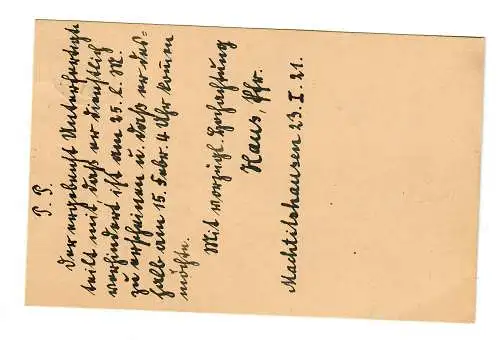 P. P.
Der ergebenst Unterfertigte
teilt mit, daß er dienstlich
verhindert ist am 25. l. M.
zu erscheinen u. daß er des-
halb am 15. Febr. 4 Uhr kommen
möchte.
Mit vorzügl. Hochachtung
Haus, Pfr.
Machtilshausen 23. I. 21.